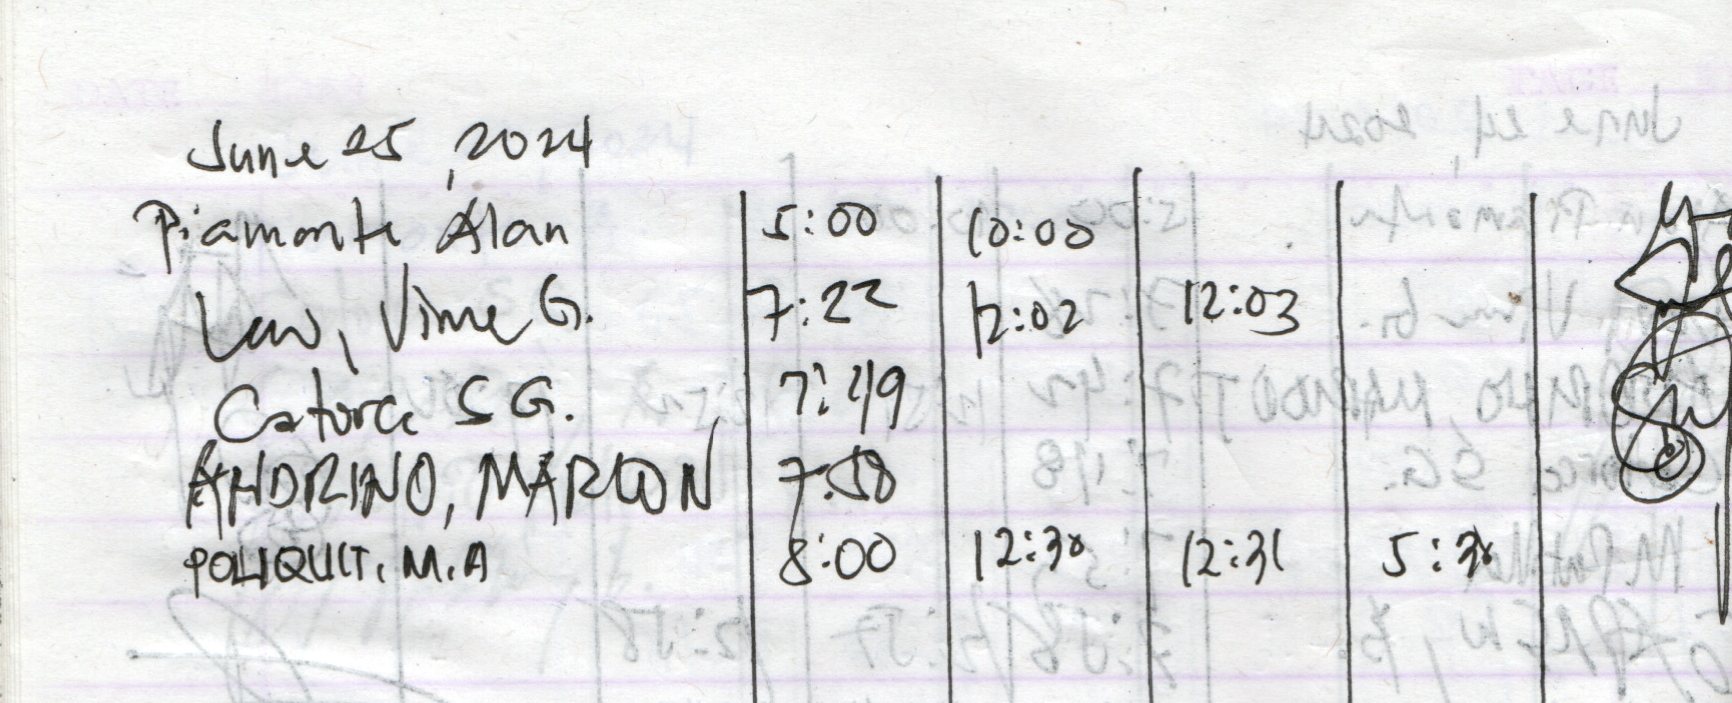 June 25, 2024
Piamonte Alan 5:00 10:00
Luv, Vime G. 7:22 12:02 12:03
Catorce S G. 7:49
ANDRINO, MARLON 7:58
POLIQUIT, M.A 8:00 12:30 12:31 5:30